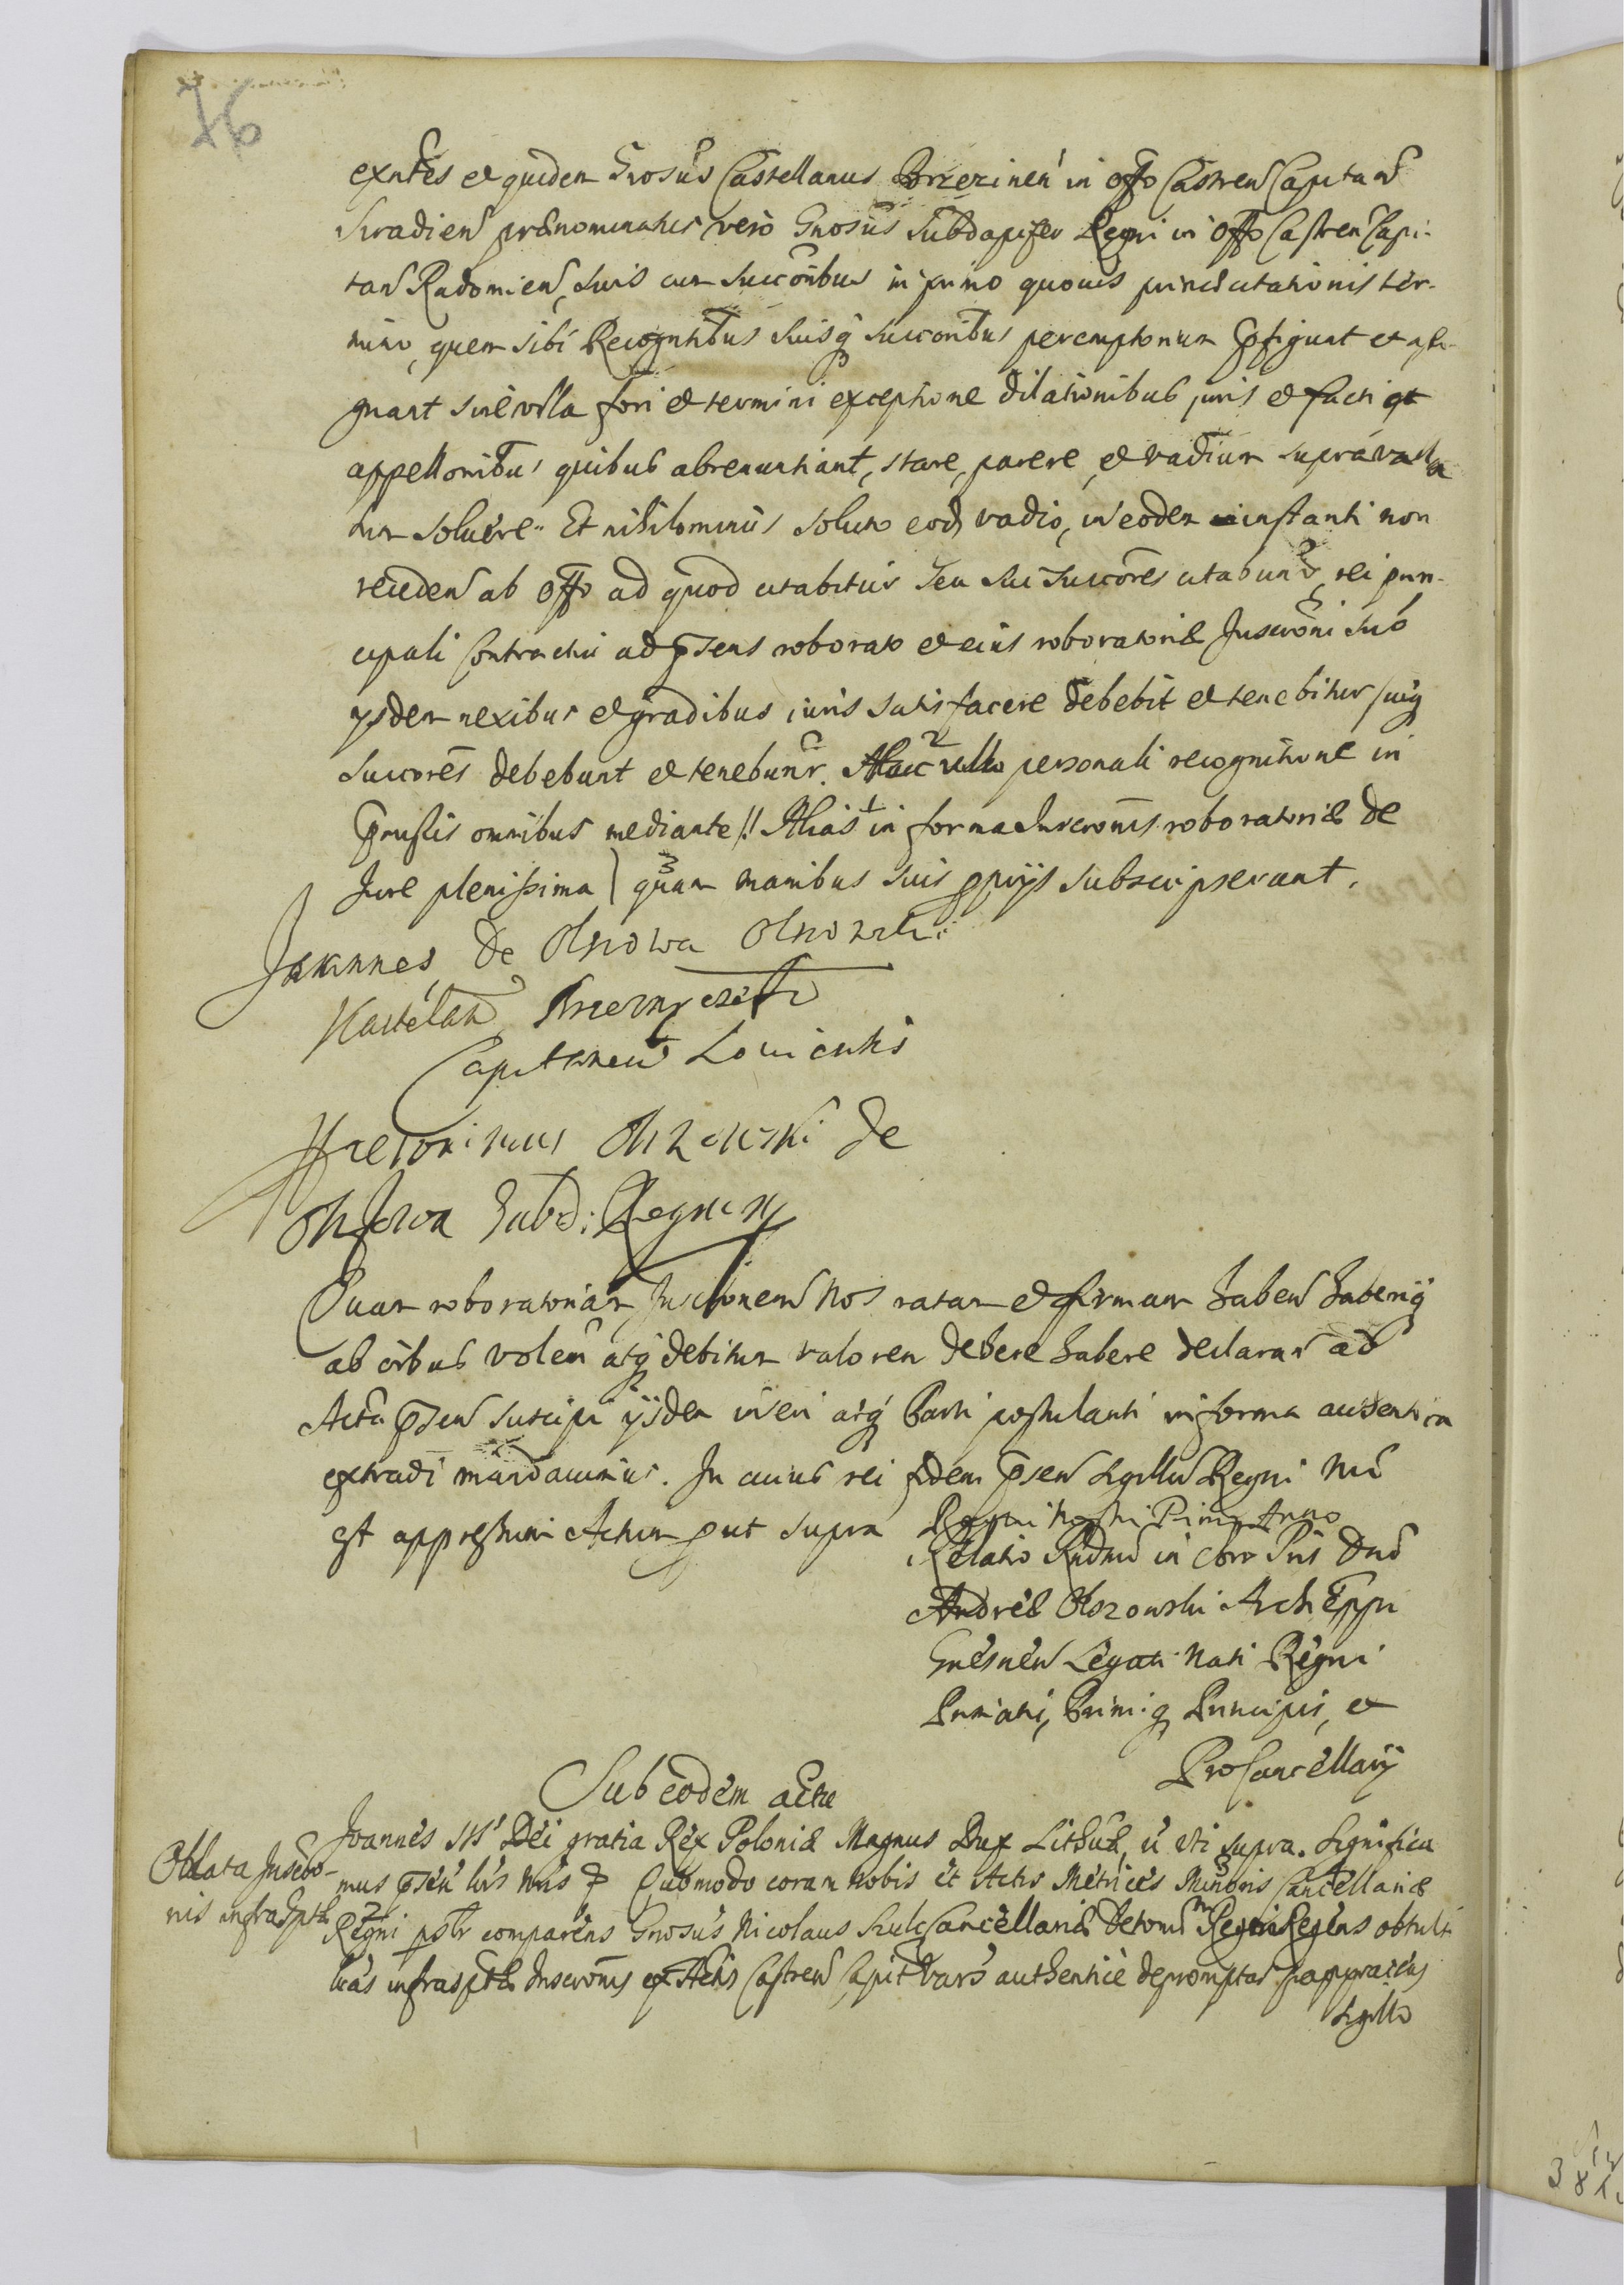 76
exntes et quidem Gnosus Castellanus Brzezinen in Offo Castren Capitan
Siradien prænominatus vero Gnosus Subdapifer Regni in Offo Castren Capi-
tan Radomien, suis cum succoribus in primo quovis princi citationis ter-
mino, quem sibi Recognntibus suisq succoribus peremptorium pfigunt et assi-
gnant sine ulla fori et termini exceptione dilationibus juris et facti et
appellonibus quibus abrenuntiant, stare, parere, et vadium supra valla
tum solvere. Et nihilominus soluto eod vadio, in eodem instanti non
receden ab Offo ad quod citabitur seu sui succores citabunr, rei prin-
cipali Contractui ad psens roborato et eius roboratoriæ Inscroni sub
ysdem nexibus et gradibus juris satisfacere debebit et tenebitur suiq
succores debebunt et tenebunr. Hac 2 personali recognitione in
pmissis omnibus mediante // Alias 1 in forma Inscronis roboratoriæ de
Jure plenissima) 3 quam manibus suis ppriis subscripserunt.
Joannes de Olszowa Olszowski
Kasztelan Brzezinski
Capitaneus Loviciensis
Hieronimus Olszowski de
Olszowa Subd: Regni
Quam roboratoriam Inscrionem Nos ratam et firmam haben haberiq
ab oibus volen atq debitum valorem debere habere declaran ad
Acta psen suscipi ysdem inseri atq Parti postulanti in forma authentica
extradi mandavimus. In cuius rei fidem psen Sigillu Regni nri
est appressum Actum put supra Regni Nostri Primo Anno
Relatio Rndmi in Chro Pris Dni
Andreæ Olszowski Archieppi
Gnesnen Legati Nati Regni
Primatis, Primiq Principis, et
ProCancellarij
Sub eodem actu
Oblata Inscro-
nis infrascptæ
Joannes IIIs Dei gratia Rex Poloniæ Magnus Dux Lithuæ, ũ uti supra. Significa
mus psen lris nris Quomodo coram Nobis et Actis Metrices Minoris 3 Cancellariæ 4
Regni 2 psonlr comparens Gnosus Nicolaus Szulc Cancellariæ Regni Regens obtulit
lras infrascptæ Inscronis ex Actis Castren Capit Vars authentice depromptas
Sigillo